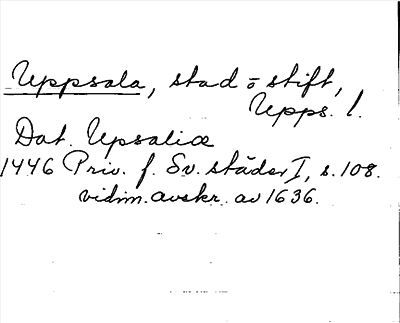 Uppsala, stad o stift,
Upps. l.
Dat. Upsaliæ
1446 Priv. f. Sv. städer I, s. 108.
vidim. avskr. av 1636.